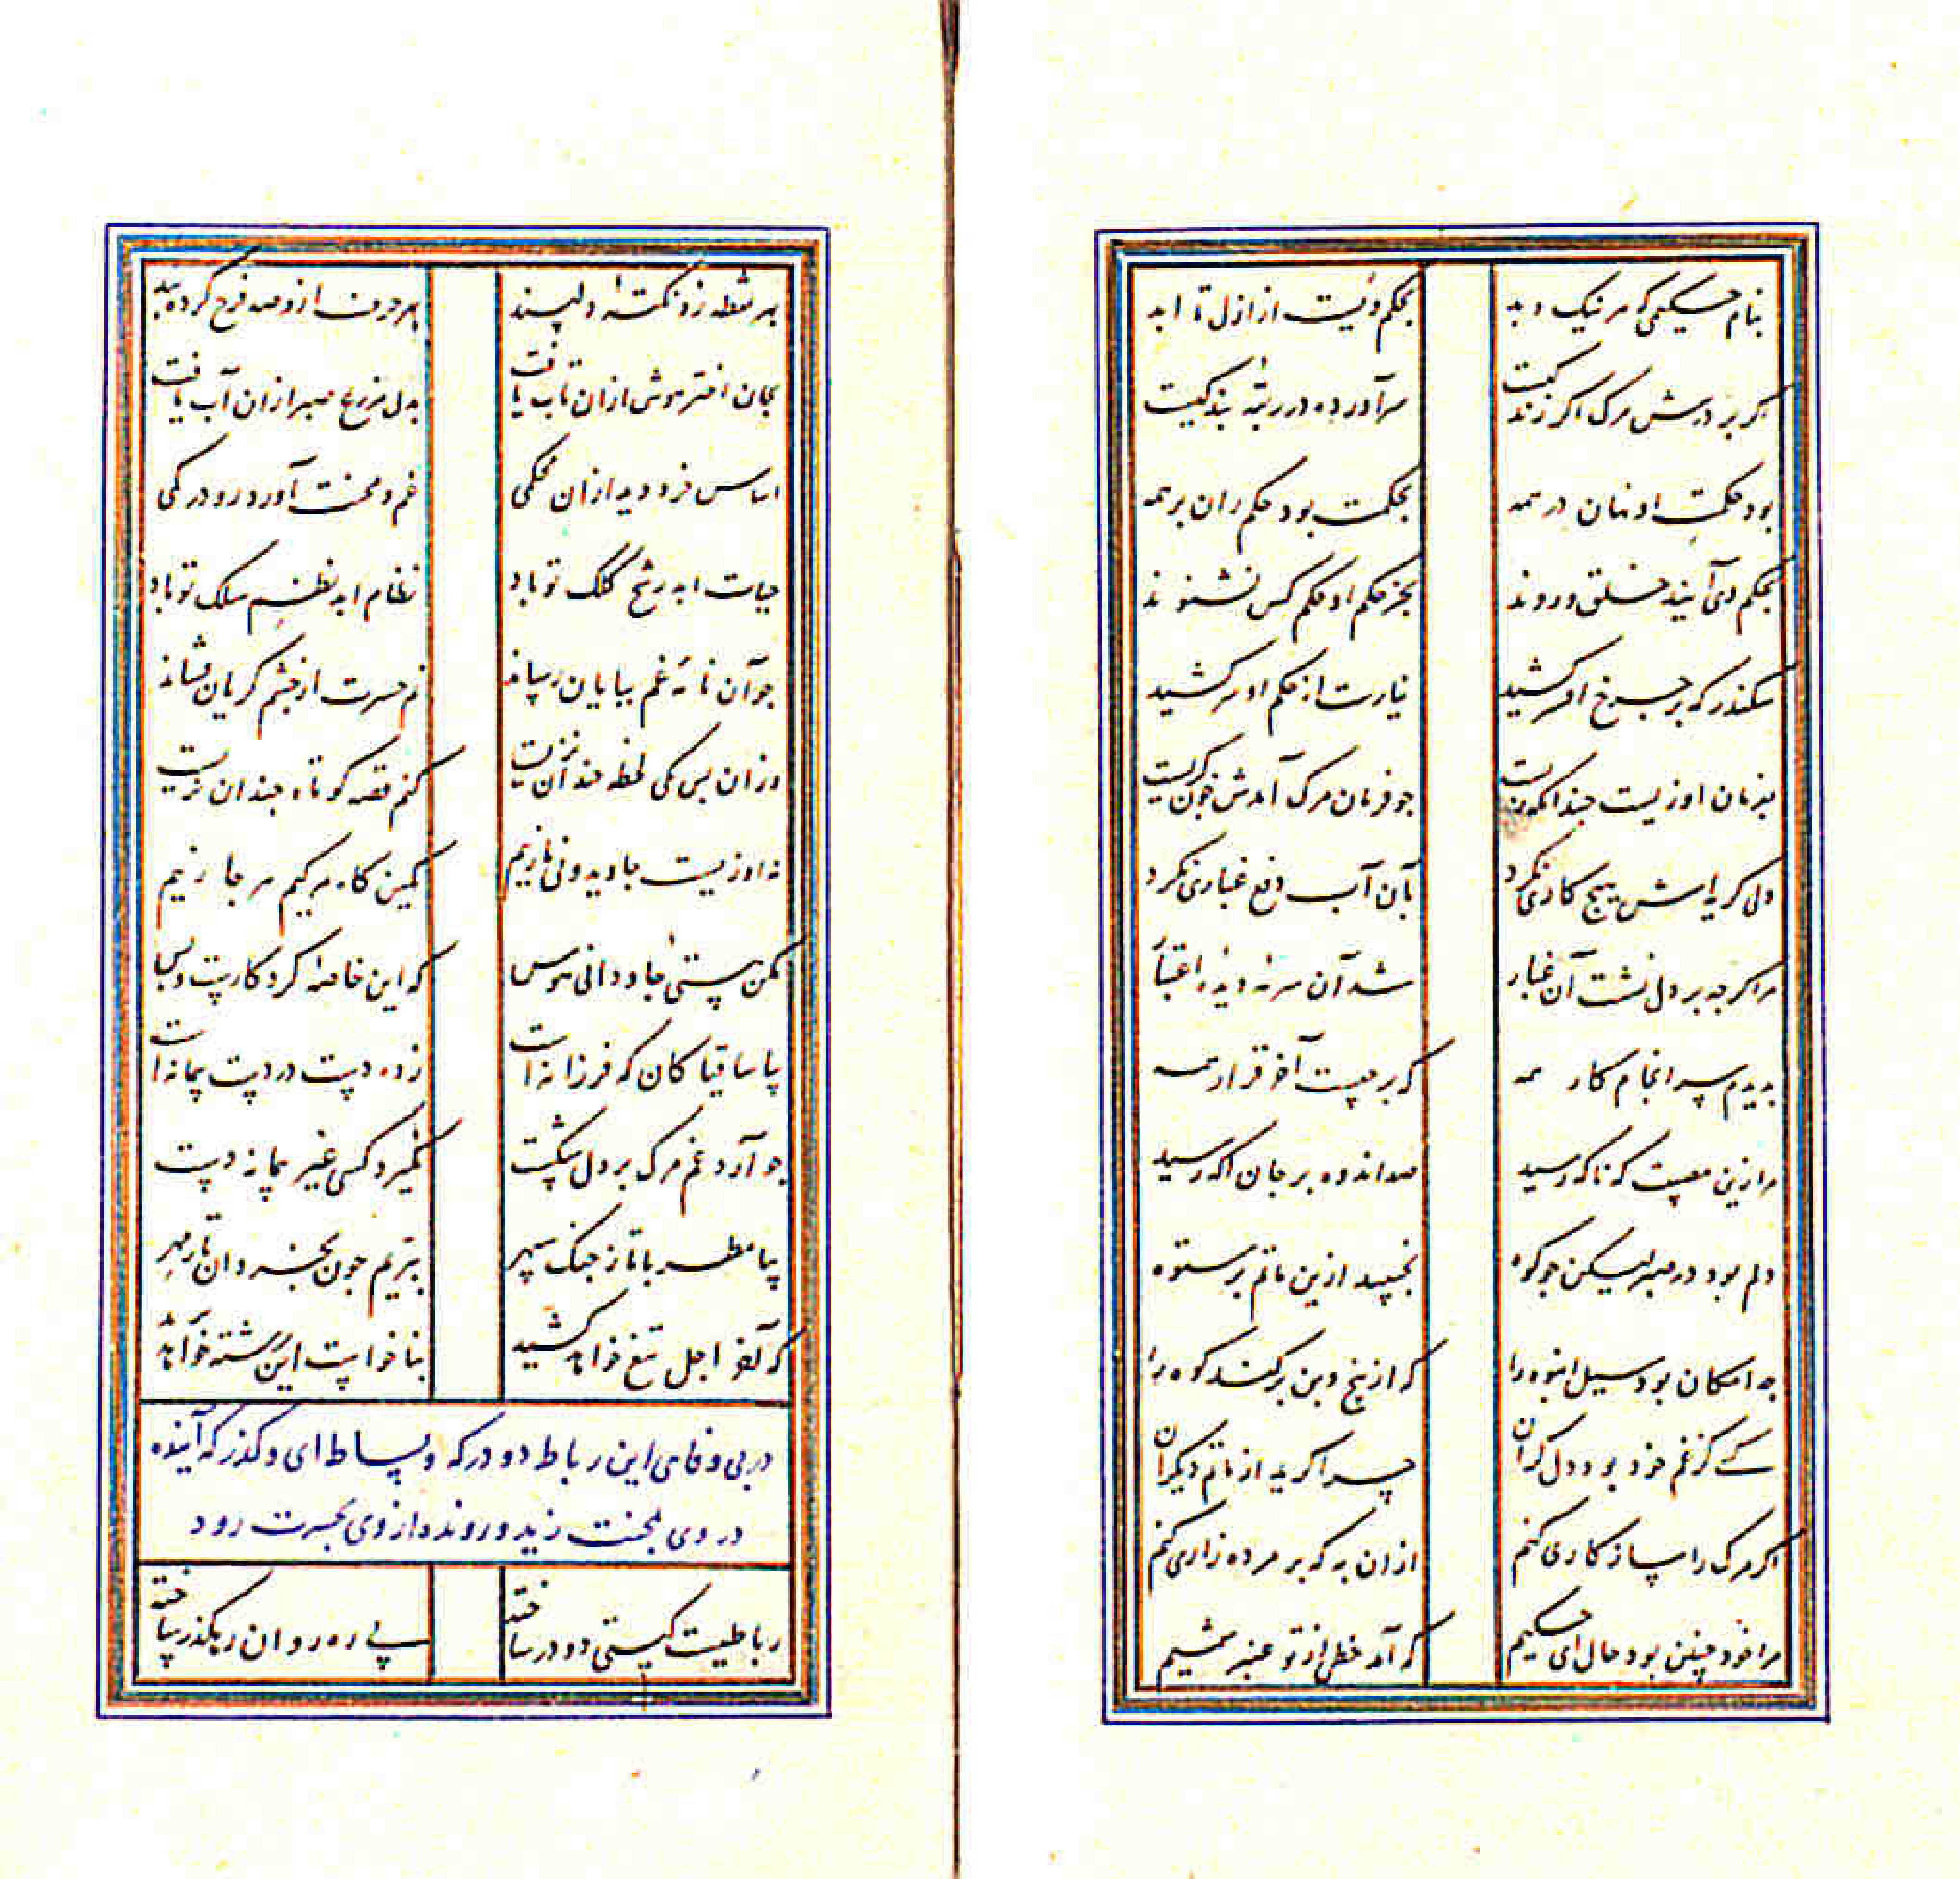 بنام حکیمی که هر نیک و بد
بحکم ویست از ازل تا ابد
اکر بر درش مرک اکر زندکیست
سرآورده در ربقهٔ بندکیست
بود حکمتِ او نهان در همه
بحکمت بود حکم ران بر همه
بحکم وی آیند خلق و روند
بجز حکم او حکم کس نشنوند
سکندر که بر چرخ افسر کشید
نیارست از حکم او سر کشید
بفرمان او زیست چندانکه زیست
جو فرمان مرک آمدش خون کریست
ولی کریه‌اش هیچ کاری نکرد
بآن آب دفع غباری نکرد
مرا کرچه بر دل نشست آن غبار
شد آن سرمهٔ دیدهٔ اعتبار
بدیدم سرانجام کار همه
که بر چیست آخر قرار همه
مرا زین مصیبت که ناکه رسید
صد اندوه بر جان اکه رسید
دلم بود در صبر لیکن جو کوه
بجنبید ازین ماتم پر ستوه
چه امکان بود سیل انبوه را
که از بیخ و بن برکند کوه را
کسے کز غم خود بود دل کران
چرا کرید از ماتم دیکران
اکر مرک را سازکاری کنم
از ان به که بر مرده زاری کنم
مرا خود چنین بود حال ای حکیم
که آمد خطی از تو عنبر شمیم
بهر نقطه زو نکتهٔ دلپسند
بهر حرف ازو صد فرح کرده بند
بجان اختر هوش ازان تاب یافت
بدل مزرع صبر ازان آب یافت
اساس خرد دید ازان محکمی
غم و محنت آورد رو در کمی
حیات ابد رشح کلک تو باد
نظام ابد نظم سلک تو باد
جو آن نامهٔ غم بپایان رساند
نم حسرت از چشم کریان فشاند
وزان پس کمی لحظه خندان نزیست
کنم قصه کوتاه چندان نزیست
نه او زیست جاوید و نی ما زییم
کمین کاه مرکیم هر جا زییم
مکن هستی جاودانی هوس
که این خاصهٔ کردکارست و بس
بیا ساقیا کان که فرزانه است
زده دست در دست پیمانه است
جو آرد غم مرک بر دل شکست
نکیرد کسی غیر پیمانه دست
بیا مطربا تا ز جنک سپهر
ببریم جون بخردان تار مهر
که آخر اجل تیغ خواهد کشید
بناخواست این رشته خواهد
در بی وفایی این رباط دو درکه و بساط ای و کذر که آینده
در وی بمحنت زید و رونده از وی بحسرت رود
رباطیست کیتی دو در ساخته
پے ره روان رهکذر ساخته